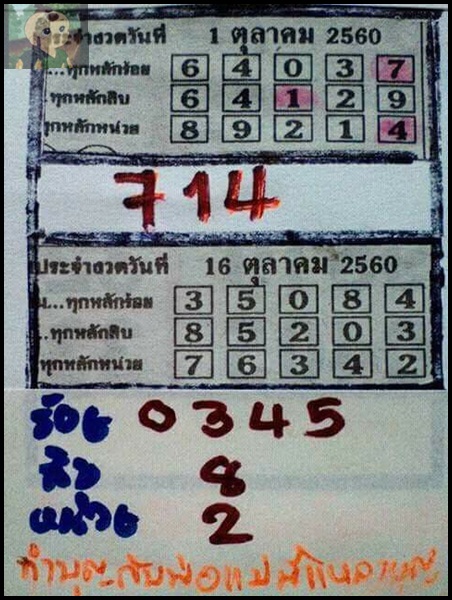 ประจำงวดวันที่ 1 ตุลาคม 2560
...ทุกหลักร้อย 6 4 0 3 7
.ทุกหลักสิบ 6 4 1 2 9
ทุกหลักหน่วย 8 9 2 1 4
714
ประจำงวดวันที่ 16 ตุลาคม 2560
น...ทุกหลักร้อย 3 5 0 8 4
..ทุกหลักสิบ 8 5 2 0 3
ทุกหลักหน่วย 7 6 3 4 2
ร้อย 0345
สิบ 8
หน่วย 2
ทำบุญกับพ่อแม่